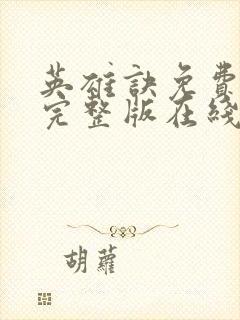 英雄訣免費
完整版在綫
胡蘿